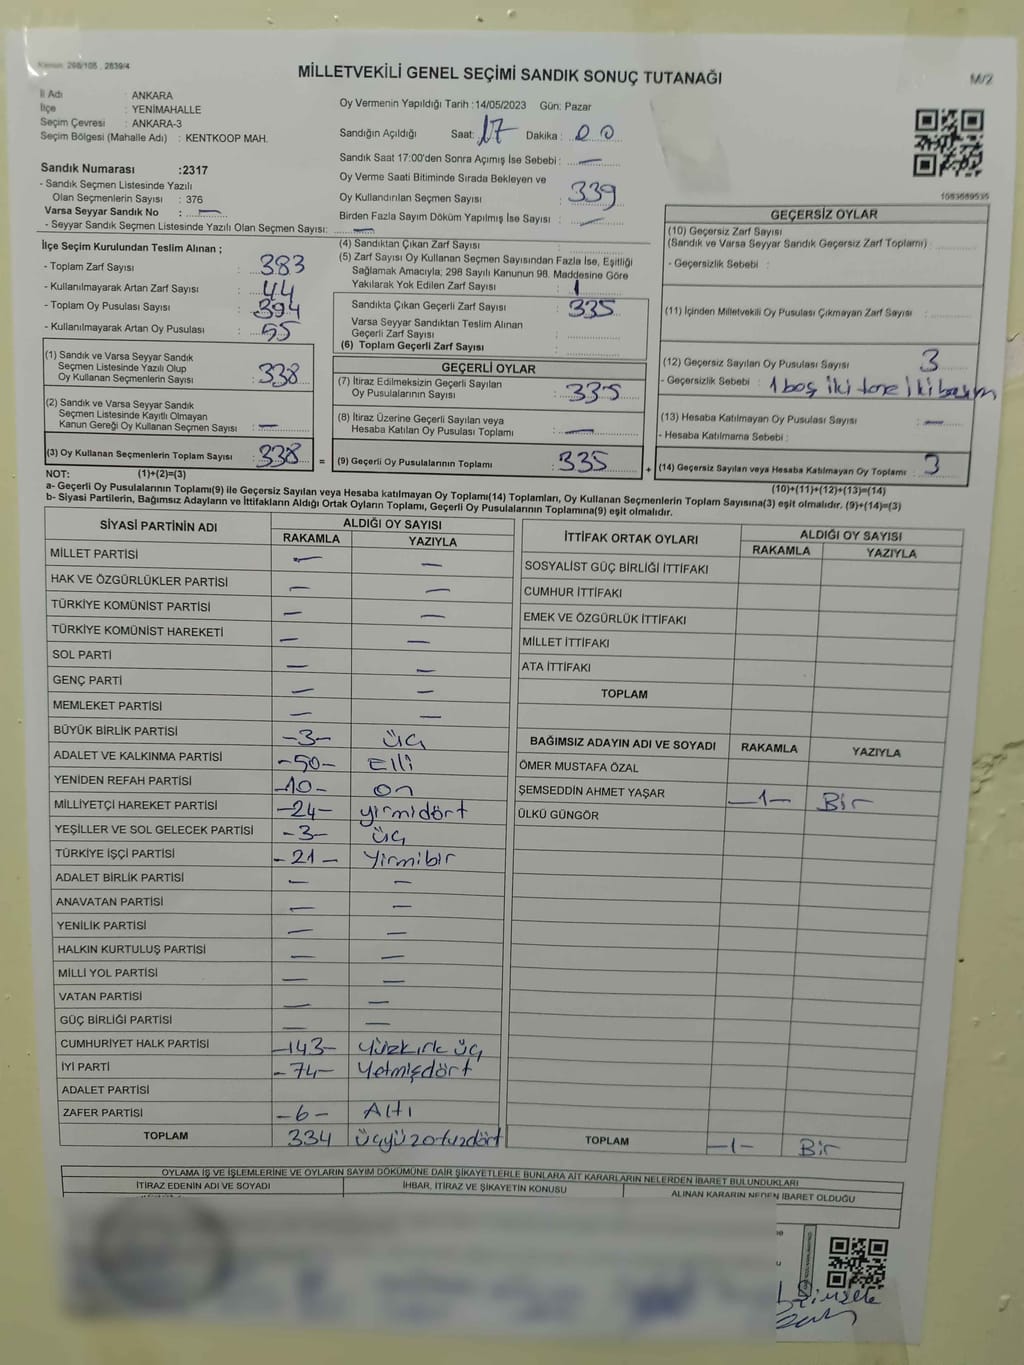 Kanun: 298/105 , 2839/4
MİLLETVEKİLİ GENEL SEÇİMİ SANDIK SONUÇ TUTANAĞI
M/2
İl Adı : ANKARA
İlçe : YENİMAHALLE
Seçim Çevresi : ANKARA-3
Seçim Bölgesi (Mahalle Adı) : KENTKOOP MAH.
Sandık Numarası :2317
- Sandık Seçmen Listesinde Yazılı
Olan Seçmenlerin Sayısı : 376
Varsa Seyyar Sandık No : —
- Seyyar Sandık Seçmen Listesinde Yazılı Olan Seçmen Sayısı: —
Oy Vermenin Yapıldığı Tarih : 14/05/2023 Gün: Pazar
Sandığın Açıldığı Saat: 17 Dakika : 00
Sandık Saat 17:00'den Sonra Açımış İse Sebebi : —
Oy Verme Saati Bitiminde Sırada Bekleyen ve
Oy Kullandırılan Seçmen Sayısı : 339
Birden Fazla Sayım Döküm Yapılmış İse Sayısı : —
1083689535
İlçe Seçim Kurulundan Teslim Alınan ;
- Toplam Zarf Sayısı : 383
- Kullanılmayarak Artan Zarf Sayısı : 44
- Toplam Oy Pusulası Sayısı : 394
- Kullanılmayarak Artan Oy Pusulası : 55
(1) Sandık ve Varsa Seyyar Sandık
Seçmen Listesinde Yazılı Olup
Oy Kullanan Seçmenlerin Sayısı : 338
(2) Sandık ve Varsa Seyyar Sandık
Seçmen Listesinde Kayıtlı Olmayan
Kanun Gereği Oy Kullanan Seçmen Sayısı : —
(3) Oy Kullanan Seçmenlerin Toplam Sayısı : 338 =
(4) Sandıktan Çıkan Zarf Sayısı :
(5) Zarf Sayısı Oy Kullanan Seçmen Sayısından Fazla İse, Eşitliği
Sağlamak Amacıyla; 298 Sayılı Kanunun 98. Maddesine Göre
Yakılarak Yok Edilen Zarf Sayısı : 1
Sandıkta Çıkan Geçerli Zarf Sayısı : 335
Varsa Seyyar Sandıktan Teslim Alınan
Geçerli Zarf Sayısı :
(6) Toplam Geçerli Zarf Sayısı :
GEÇERLİ OYLAR
(7) İtiraz Edilmeksizin Geçerli Sayılan
Oy Pusulalarının Sayısı : 335
(8) İtiraz Üzerine Geçerli Sayılan veya
Hesaba Katılan Oy Pusulası Toplamı : —
(9) Geçerli Oy Pusulalarının Toplamı : 335 +
GEÇERSİZ OYLAR
(10) Geçersiz Zarf Sayısı
(Sandık ve Varsa Seyyar Sandık Geçersiz Zarf Toplamı) :
- Geçersizlik Sebebi :
(11) İçinden Milletvekili Oy Pusulası Çıkmayan Zarf Sayısı :
(12) Geçersiz Sayılan Oy Pusulası Sayısı : 3
- Geçersizlik Sebebi : 1 boş iki tane iki basım
(13) Hesaba Katılmayan Oy Pusulası Sayısı : —
- Hesaba Katılmama Sebebi :
(14) Geçersiz Sayılan veya Hesaba Katılmayan Oy Toplamı : 3
NOT: (1)+(2)=(3)
(10)+(11)+(12)+(13)=(14)
a- Geçerli Oy Pusulalarının Toplamı(9) ile Geçersiz Sayılan veya Hesaba katılmayan Oy Toplamı(14) Toplamları, Oy Kullanan Seçmenlerin Toplam Sayısına(3) eşit olmalıdır. (9)+(14)=(3)
b- Siyasi Partilerin, Bağımsız Adayların ve İttifakların Aldığı Ortak Oyların Toplamı, Geçerli Oy Pusulalarının Toplamına(9) eşit olmalıdır.
SİYASİ PARTİNİN ADI ALDIĞI OY SAYISI
RAKAMLA YAZIYLA
MİLLET PARTİSİ — —
HAK VE ÖZGÜRLÜKLER PARTİSİ — —
TÜRKİYE KOMÜNİST PARTİSİ — —
TÜRKİYE KOMÜNİST HAREKETİ — —
SOL PARTİ — —
GENÇ PARTİ — —
MEMLEKET PARTİSİ — —
BÜYÜK BİRLİK PARTİSİ -3- üç
ADALET VE KALKINMA PARTİSİ -50- Elli
YENİDEN REFAH PARTİSİ -10- on
MİLLİYETÇİ HAREKET PARTİSİ -24- yirmidört
YEŞİLLER VE SOL GELECEK PARTİSİ -3- üç
TÜRKİYE İŞÇİ PARTİSİ -21- Yirmibir
ADALET BİRLİK PARTİSİ — —
ANAVATAN PARTİSİ — —
YENİLİK PARTİSİ — —
HALKIN KURTULUŞ PARTİSİ — —
MİLLİ YOL PARTİSİ — —
VATAN PARTİSİ — —
GÜÇ BİRLİĞİ PARTİSİ — —
CUMHURİYET HALK PARTİSİ -143- Yüzkırk üç
İYİ PARTİ -74- Yetmişdört
ADALET PARTİSİ
ZAFER PARTİSİ -6- Altı
TOPLAM 334 üçyüzotuzdört
İTTİFAK ORTAK OYLARI ALDIĞI OY SAYISI
RAKAMLA YAZIYLA
SOSYALİST GÜÇ BİRLİĞİ İTTİFAKI
CUMHUR İTTİFAKI
EMEK VE ÖZGÜRLÜK İTTİFAKI
MİLLET İTTİFAKI
ATA İTTİFAKI
TOPLAM
BAĞIMSIZ ADAYIN ADI VE SOYADI RAKAMLA YAZIYLA
ÖMER MUSTAFA ÖZAL
ŞEMSEDDİN AHMET YAŞAR -1- Bir
ÜLKÜ GÜNGÖR
TOPLAM -1- Bir
OYLAMA İŞ VE İŞLEMLERİNE VE OYLARIN SAYIM DÖKÜMÜNE DAİR ŞİKAYETLERLE BUNLARA AİT KARARLARIN NELERDEN İBARET BULUNDUKLARI
İTİRAZ EDENİN ADI VE SOYADI İHBAR, İTİRAZ VE ŞİKAYETİN KONUSU ALINAN KARARIN NEDEN İBARET OLDUĞU